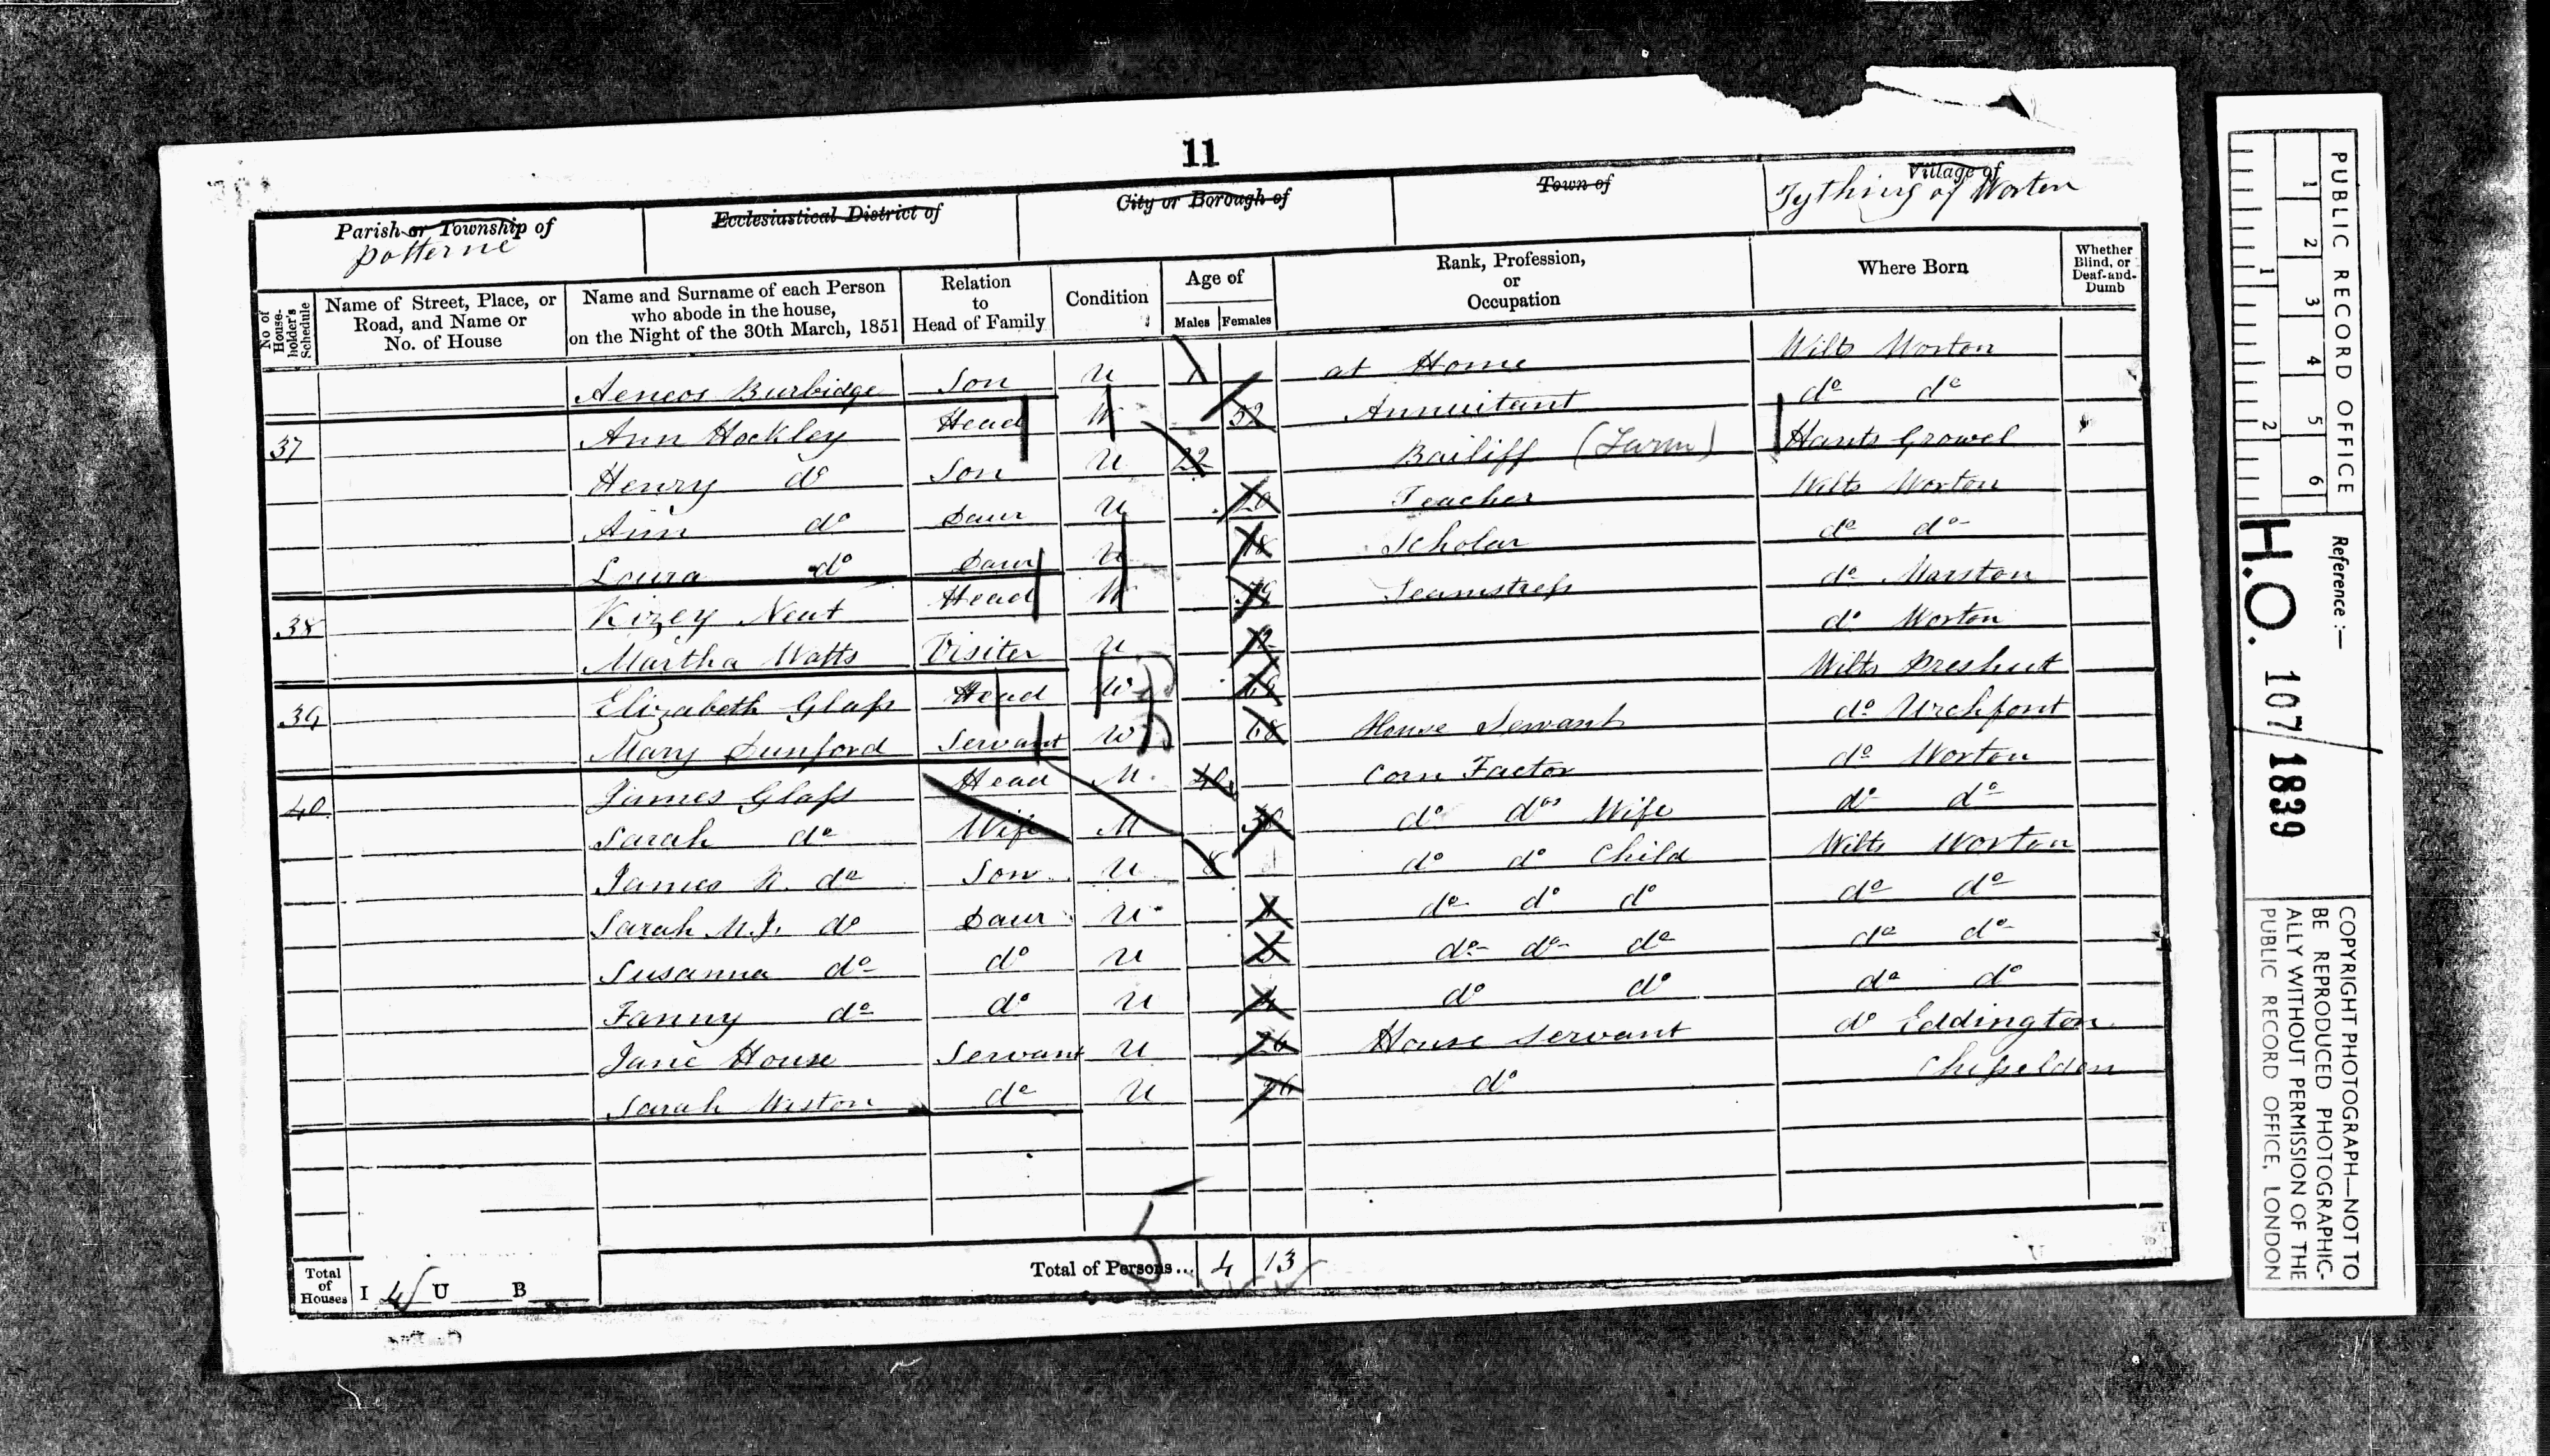 11
Parish or Township of
Potterne
Ecclesiastical District of
City or Borough of
Town of
Village of
Tything of Worton
No of House-holder's Schedule
Name of Street, Place, or Road, and Name or No. of House
Name and Surname of each Person who abode in the house, on the Night of the 30th March, 1851
Relation to Head of Family
Condition
Age of
Males Females
Rank, Profession, or Occupation
Where Born
Whether Blind, or Deaf-and-Dumb
Aeneos Burbidge Son U at Home Wilts Worton
37 Ann Hockley Head W 52 Annuitant do do
Henry do Son U 22 Bailiff (Farm) Hants Growel
Ann do Daur U 20 Teacher Wilts Worton
Loura do Daur U 18 Scholar do do
38 Kizey Neat Head W Seamstress do Marston
Martha Watts Visiter U 12 do Worton
39 Elizabeth Glass Head W Wilts Preshut
Mary Dunford Servant W 68 House Servant do Urchfont
40 James Glass Head M Corn Factor do Worton
Sarah do Wife M do dos Wife do do
James R. do Son U 8 do do Child Wilts Worton
Sarah M.J. do Daur U do do do do do
Susanna do do U do do do do do
Fanny do do U do do do do
Jane House Servant U 26 House Servant do Eddington
Sarah Weston do U do Chiseldon
Total of Houses I 4 U B
Total of Persons... 4 13
5
PUBLIC RECORD OFFICE
1 2 3 4 5 6
1 2
Reference :—
H.O. 107/1839
COPYRIGHT PHOTOGRAPH—NOT TO
BE REPRODUCED PHOTOGRAPHIC-
ALLY WITHOUT PERMISSION OF THE
PUBLIC RECORD OFFICE, LONDON